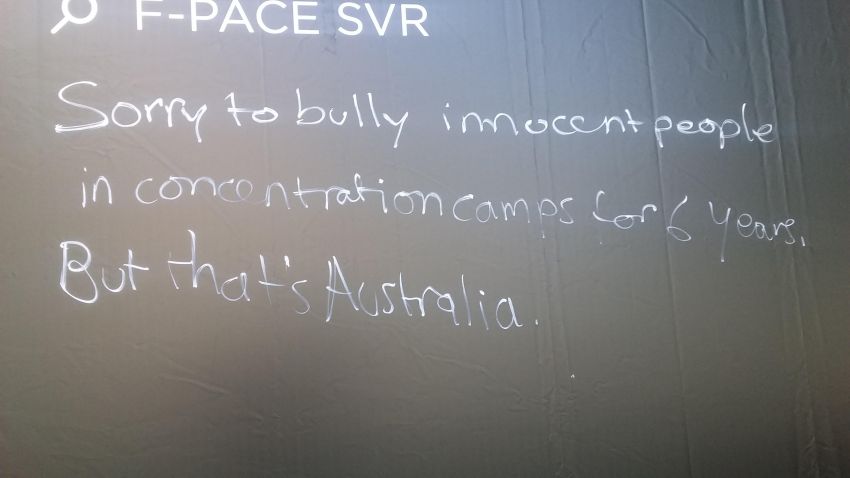 F-PACE SVR
Sorry to bully innocent people
in concentration camps for 6 years.
But that's Australia.